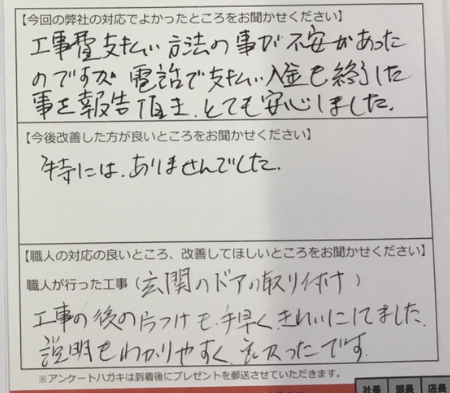 【今回の弊社の対応でよかったところをお聞かせください】
工事費支払い方法の事が不安があった
のですが 電話で支払い入金も終了した
事を報告頂き、とても安心しました。
【今後改善した方が良いところをお聞かせください】
特には、ありませんでした。
【職人の対応の良いところ、改善してほしいところをお聞かせください】
職人が行った工事(玄関のドアの取り付け)
工事の後の片つけも手早くきれいにしてました。
説明もわかりやすく、良かったです。
※アンケートハガキは到着後にプレゼントを郵送させていただきます。
社長 部長 店長